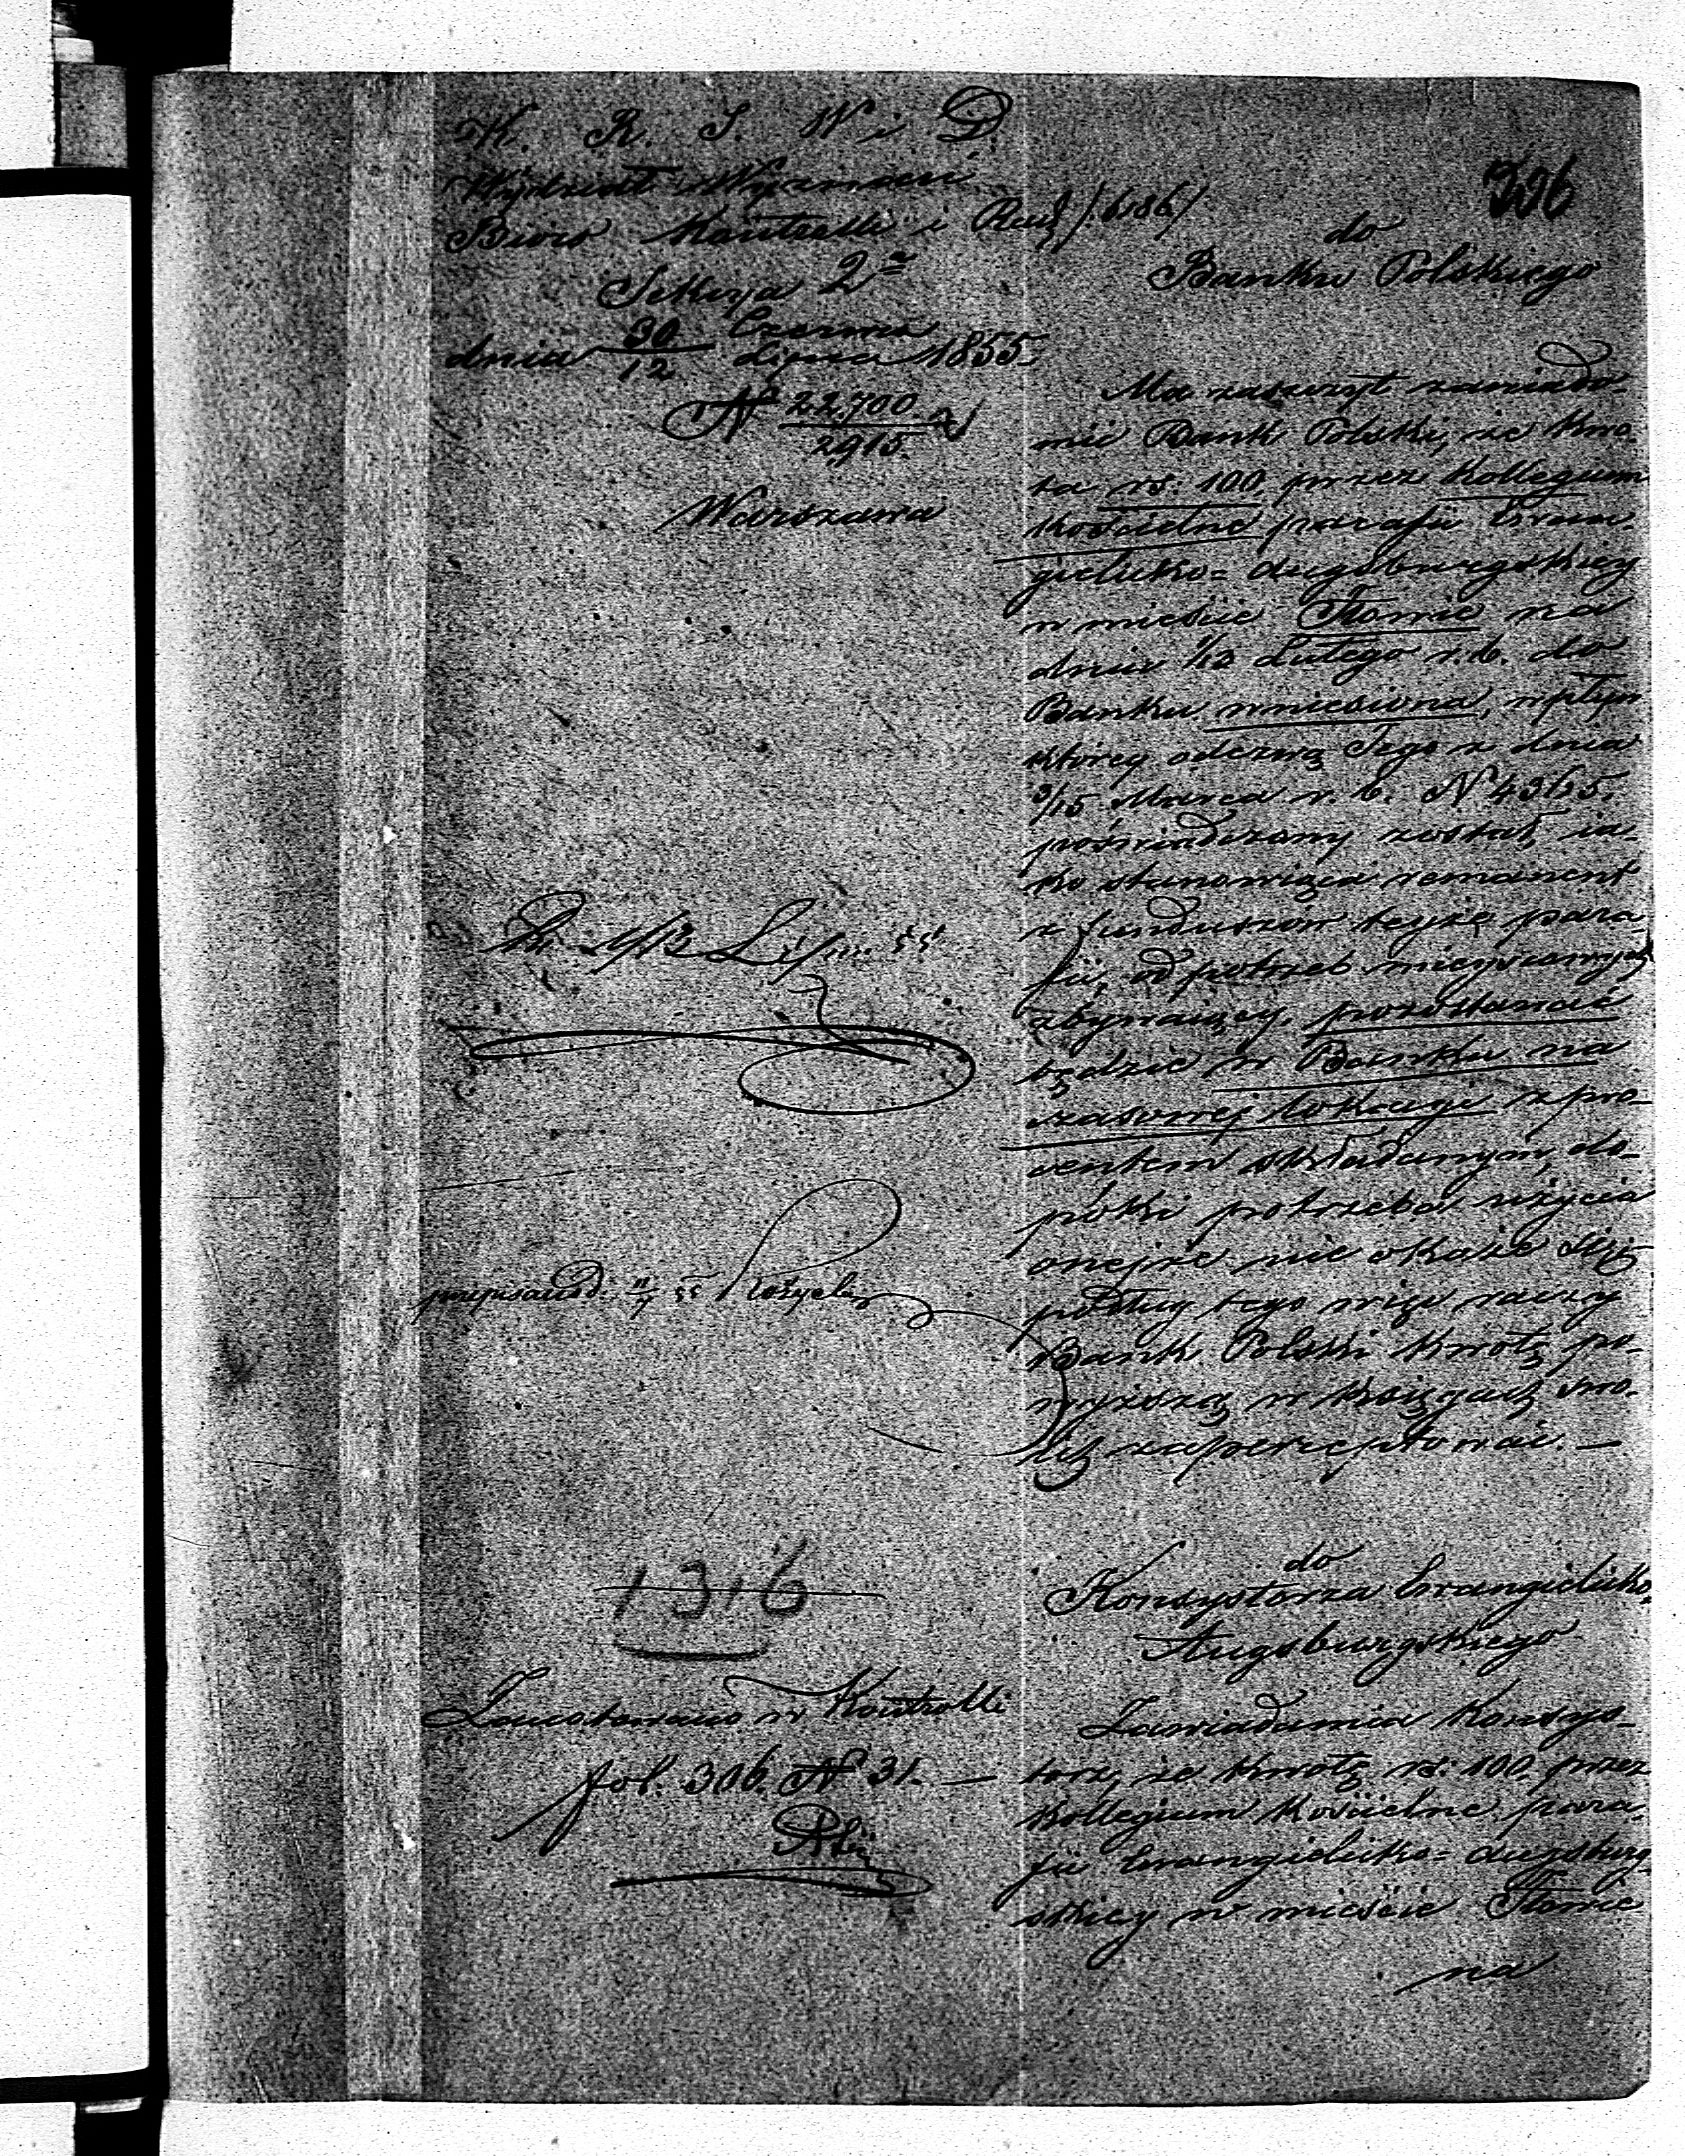 K. R. S. W i D.
Wydział Wyznań
Biuro Kontrolli i Rach /6186/
Sekcya 2ª
dnia 30 Czerwca
12 Lipca 1855.
N 22,700
2915.
Warszawa
306
do
Banku Polskiego
Ma zaszczyt zawiado-
mić Bank Polski, że kwo-
ta rs: 100, przez Kollegium
Kościelne parafii Ewan-
gielicko= Augsburgskiey
w mieście Iłowie na
dniu 1/13 Lutego r. b. do
Banku wniesiona, wpływ
którey odezwą Jego z dnia
3/15 Marca r. b. N 4365,
poświadczony został, ia-
ko stanowiąca remanent
z funduszów teyże para-
fii, od potrzeb mieyscowych
zbywaiący, pozostawać
będzie w Banku na
czasowej lokacyi z pro-
centem składanym, do-
póki potrzeba użycia
onejże nie okaże się
podług tego więc raczy
Bank Polski kwotę po-
wyższą w księgach swo-
ich zapercypować. —
przepisano d. 11/7 55
1316
Zanotowano w Kontrolli
fol. 306. N 31. —
do
Konsystorza Ewangielicko
Augsburgskiego
Zawiadamia Konsys-
torz, że kwotę rs: 100, przez
Kollegium Kościelne para-
fii Ewangielicko= Augsburg-
skiey w mieście Iłowie
na